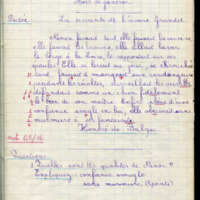 Dictée La servante de l'avare Grandet
Nanon faisait tout elle faisait la cuisine
elle faisait les lessives, elle allait laver
le linge à la Loire, le rapportait sur ses
épaules. Elle se levait au jour, se couchait
tard, faisait à manger aux vendangeurs
pendant les récoltes, surveillait les
défendait comme un chien fidèlement
le bien de son maître. Enfin pleine d'une
confiance aveugle en lui, elle obéissait sans
murmure à ses
Honoré de Balzac
Questions
Quelles sont les qualités de Nanon ?
Expliquez: confiance aveugle
sans murmure